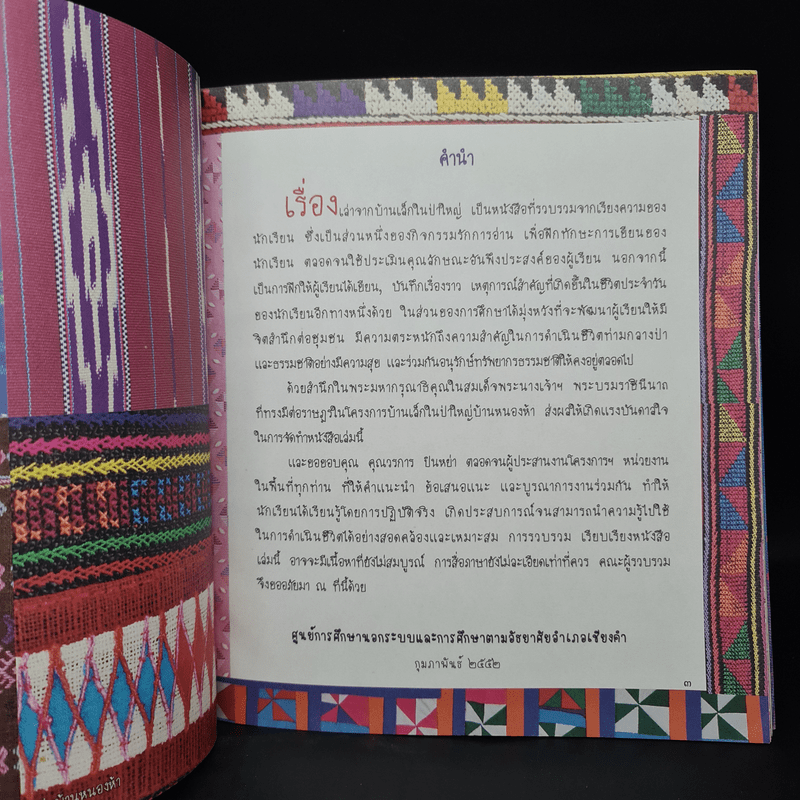 คำนำ
เรื่องเล่าจากบ้านเล็กในป่าใหญ่ เป็นหนังสือที่รวบรวมจากเรียงความของ
นักเรียน ซึ่งเป็นส่วนหนึ่งของกิจกรรมรักการอ่าน เพื่อฝึกทักษะการเขียนของ
นักเรียน ตลอดจนใช้ประเมินคุณลักษณะอันพึงประสงค์ของผู้เรียน นอกจากนี้
เป็นการฝึกให้ผู้เรียนได้เขียน, บันทึกเรื่องราว เหตุการณ์สำคัญที่เกิดขึ้นในชีวิตประจำวัน
ของนักเรียนอีกทางหนึ่งด้วย ในส่วนของการศึกษาได้มุ่งหวังที่จะพัฒนาผู้เรียนให้มี
จิตสำนึกต่อชุมชน มีความตระหนักถึงความสำคัญในการดำเนินชีวิตท่ามกลางป่า
และธรรมชาติอย่างมีความสุข และร่วมกันอนุรักษ์ทรัพยากรธรรมชาติให้คงอยู่ตลอดไป
ด้วยสำนึกในพระมหากรุณาธิคุณในสมเด็จพระนางเจ้าฯ พระบรมราชินีนาถ
ที่ทรงมีต่อราษฎรในโครงการบ้านเล็กในป่าใหญ่บ้านหนองห้า ส่งผลให้เกิดแรงบันดาลใจ
ในการจัดทำหนังสือเล่มนี้
และขอขอบคุณ คุณวรการ ปินหย่า ตลอดจนผู้ประสานงานโครงการฯ หน่วยงาน
ในพื้นที่ทุกท่าน ที่ให้คำแนะนำ ข้อเสนอแนะ และบูรณาการงานร่วมกัน ทำให้
นักเรียนได้เรียนรู้โดยการปฏิบัติจริง เกิดประสบการณ์จนสามารถนำความรู้ไปใช้
ในการดำเนินชีวิตได้อย่างสอดคล้องและเหมาะสม การรวบรวม เรียบเรียงหนังสือ
เล่มนี้ อาจจะมีเนื้อหาที่ยังไม่สมบูรณ์ การสื่อภาษายังไม่ละเอียดเท่าที่ควร คณะผู้รวบรวม
จึงขออภัยมา ณ ที่นี้ด้วย
ศูนย์การศึกษานอกระบบและการศึกษาตามอัธยาศัยอำเภอเชียงคำ
กุมภาพันธ์ ๒๕๕๒
๓
บ้านหนองห้า